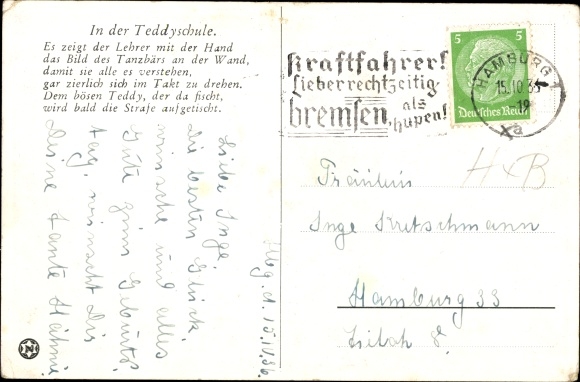 In der Teddyschule.
Es zeigt der Lehrer mit der Hand
das Bild des Tanzbärs an der Wand,
damit sie alle es verstehen,
gar zierlich sich im Takt zu drehen.
Dem bösen Teddy, der da fischt,
wird bald die Strafe aufgetischt.
Hbg. d. 15.10.36.
Liebe Inge,
die besten Glück
wünsche und alles
Gute zum Geburts
tag, wünscht Dir
Deine Tante
Kraftfahrer!
Lieber rechtzeitig
bremsen, als
hupen!
5 5
Deutsches Reich
HAMBURG 1
15.10.36
-19
Xa
H x B
Fräulein
Inge Kretschmann
Hamburg 33